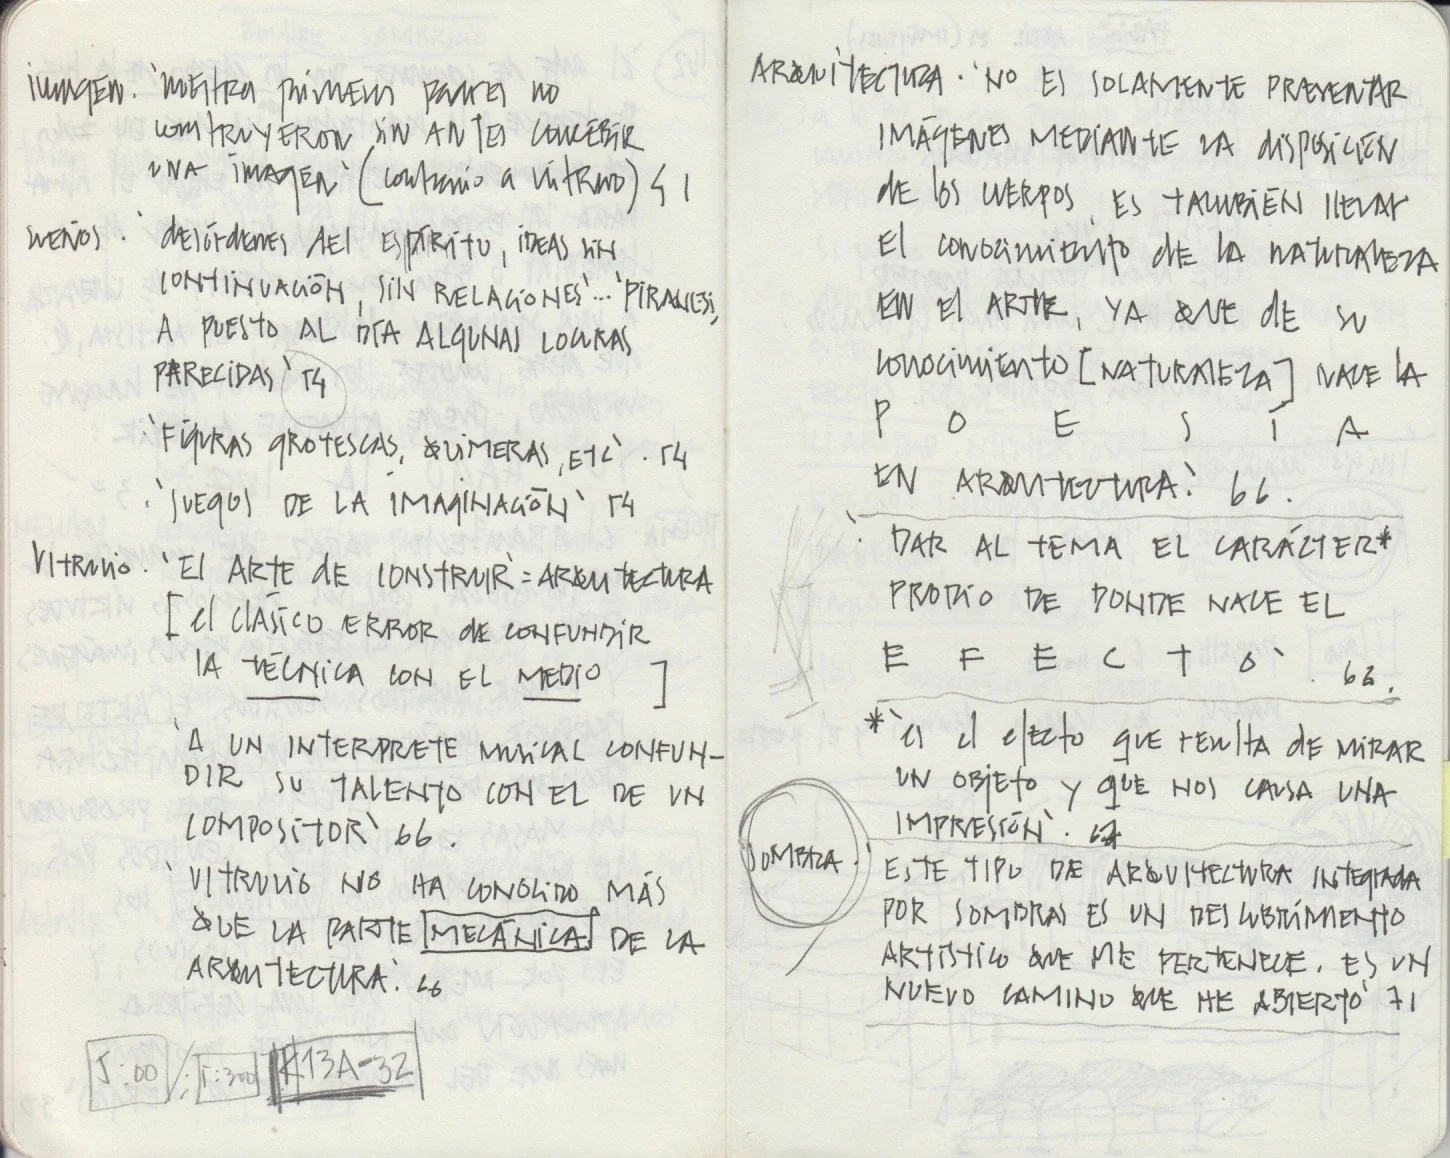 imagen. 'nuestros primeros padres no
construyeron sin antes concebir
una imagen' (contrario a vitruvio) 41
sueños. 'desórdenes del espíritu, ideas sin
continuación, sin relaciones'... 'Piranesi,
a puesto al día algunas locuras
parecidas' 54
'figuras grotescas, quimeras, etc'. 54
'juegos de la imaginación' 54
Vitruvio. 'El arte de construir' = arquitectura
[El clásico error de confundir
la técnica con el medio]
'A un interprete musical confun-
dir su talento con el de un
compositor' 66.
'Vitruvio no ha conocido más
que la parte mecánica de la
arquitectura.' 66
5:00 / 1:300 K13A-32
Arquitectura. 'No es solamente presentar
imágenes mediante la disposición
de los cuerpos, es también llevar
el conocimiento de la naturaleza
en el arte, ya que de su
conocimiento [naturaleza] nace la
P O E S Í A
en arquitectura.' 66.
'Dar al tema el carácter*
propio de donde nace el
E F E C T O' . 66.
*'es el efecto que resulta de mirar
un objeto y que nos causa una
impresión'. 67
Sombra. 'Este tipo de arquitectura integrada
por sombras es un descubrimiento
artístico que me pertenece. Es un
nuevo camino que he abierto' 71